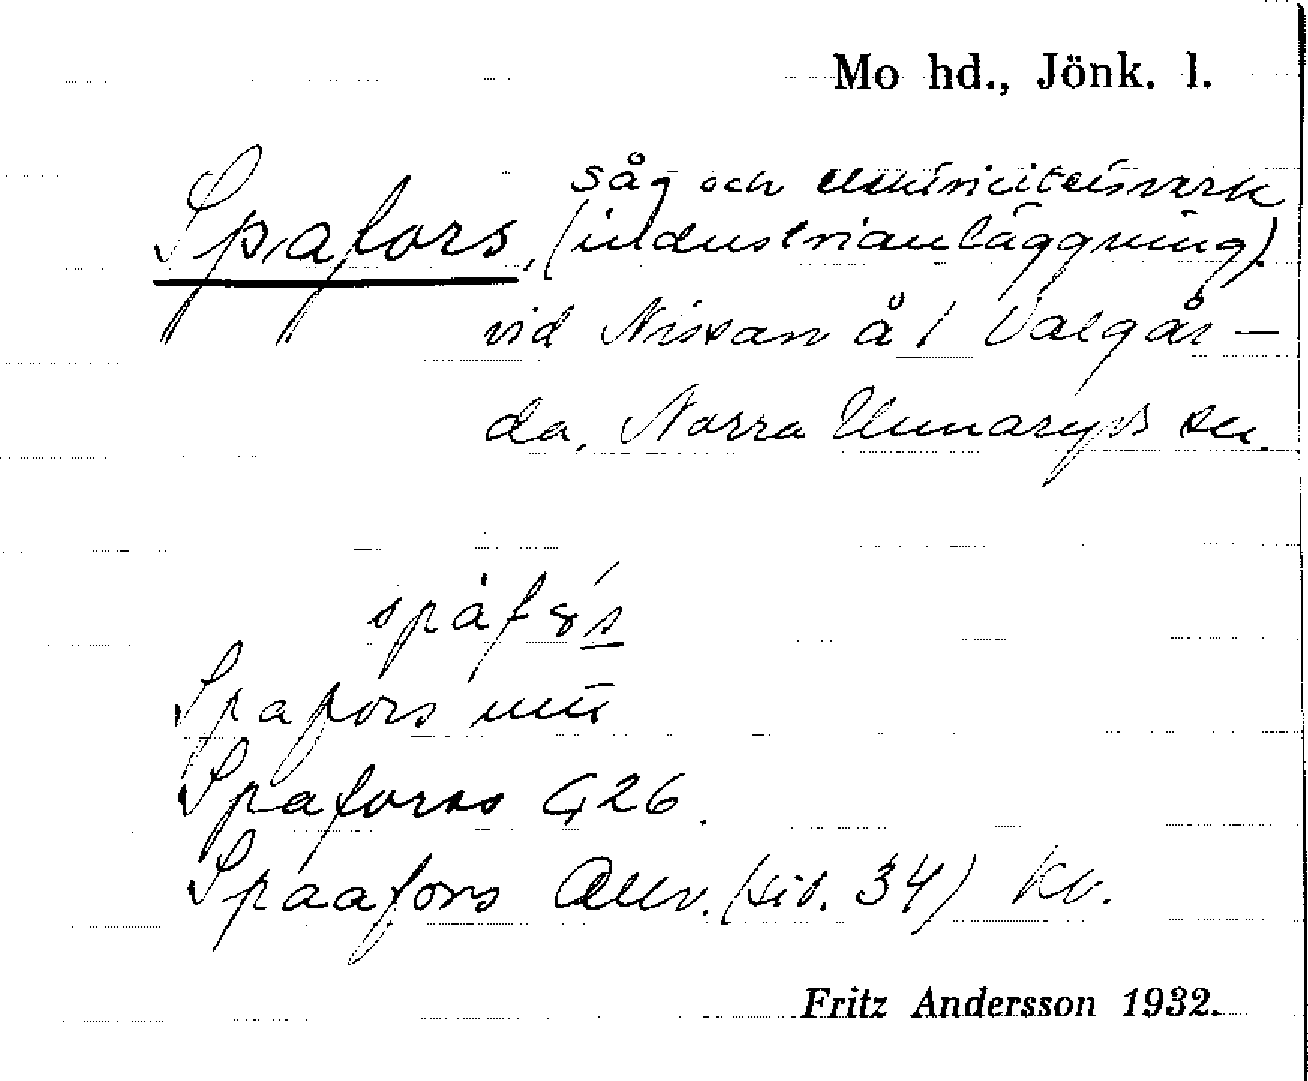 Mo hd., Jönk. l.
såg och elektricitetsverk
Spafors, (industrianläggning)
vid Nissan å / Valgår-
da, Norra Unnaryds sn.
Spafors
Spaforss G 26.
Spaafors Allv. (sid. 34) Kv.
Fritz Andersson 1932.